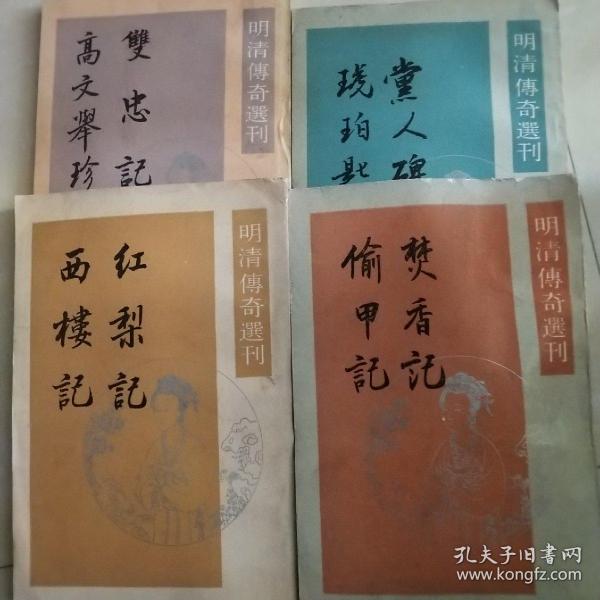 明清傳奇選刊
雙忠記
高文舉珍
明清傳奇選刊
黨人碑
琥珀匙
明清傳奇選刊
红梨記
西樓記
明清傳奇選刊
焚香記
偷甲記
孔夫子旧书网
www.kongfz.com